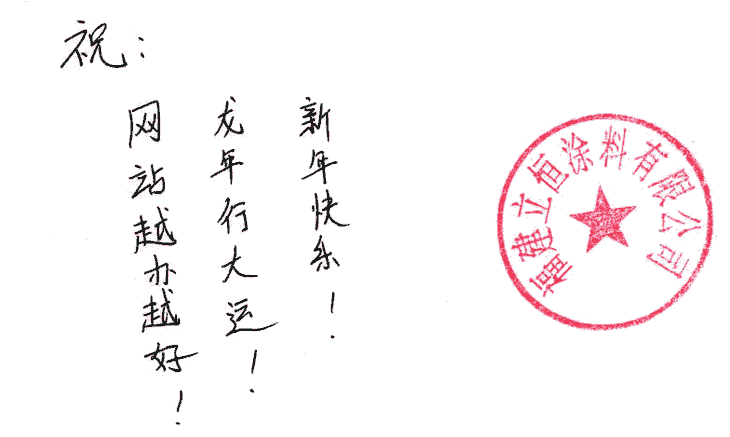 祝：
新年快乐！
龙年行大运！
网站越办越好！
福建立恒涂料有限公司